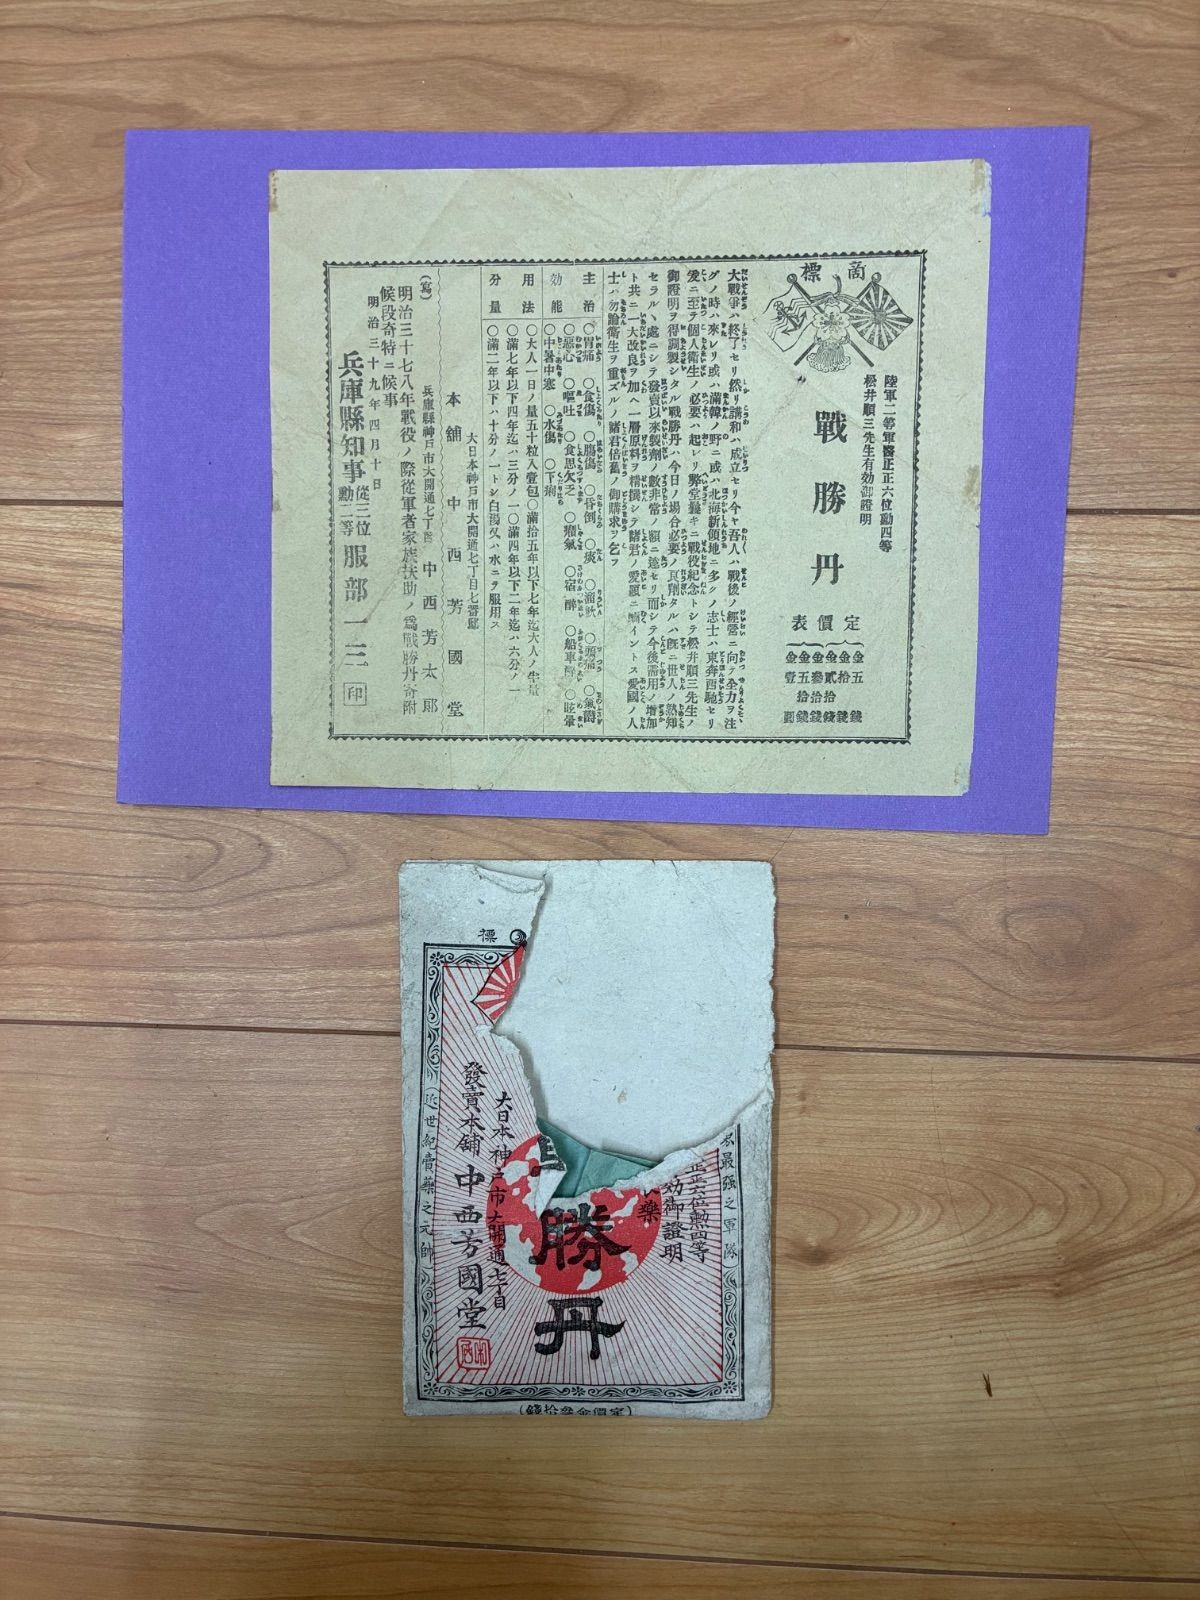 商標
陸軍二等軍醫正正六位勳四等
松井順三先生有効御證明
戰勝丹
定價表
金五錢
金拾錢
金貳拾錢
金參拾錢
金五拾錢
金壹圓
大戰爭ハ終了セリ然リ講和ハ成立セリ今ヤ吾人ハ戰後ノ經營ニ向テ全力ヲ注
グノ時ハ來レリ或ハ滿韓ノ野ニ或ハ北海新領地ニ多クノ志士ハ東奔西馳セリ
爰ニ至テ個人衛生ノ必要ハ起レリ弊堂曩キニ戰役紀念トシテ松井順三先生ノ
御證明ヲ得調製シタル戰勝丹ハ今日ノ場合必要ノ良劑タルハ既ニ世人ノ熟知
セラルヽ處ニシテ發賣以來製劑ノ數非常ノ額ニ達セリ而シテ今後需用ノ增加
ト共ニ一大改良ヲ加ヘ一層原料ヲ精撰シテ諸君ノ愛顧ニ酬イントス愛國ノ人
士ハ勿論衛生ヲ重ズルノ諸君倍舊ノ御購求ヲ乞フ
主治 ○胃痛 ○食傷 ○腹傷 ○昏倒 ○痰 ○溜飮 ○頭痛 ○氣鬱
効能 ○惡心 ○嘔吐 ○食思欠乏 ○癪氣 ○宿醉 ○船車醉 ○眩暈
○中暑中寒 ○水傷 ○下痢
用法 ○大人一日ノ量五十粒入壹包○滿拾五年以下七年迄大人ノ半量
分量 ○滿七年以下四年迄ハ三分ノ一○滿四年以下二年迄ハ六分ノ一
○滿二年以下ハ十分ノ一トシ白湯又ハ水ニテ服用ス
大日本神戸市大開通七丁目七番邸
本舖 中西芳國堂
(寫)
兵庫縣神戸市大開通七丁目 中西芳太郎
明治三十七八年戰役ノ際從軍者家族扶助ノ爲戰勝丹寄附
候段奇特ニ候事
明治三十九年四月十日
兵庫縣知事從三位勳二等服部一三 印
標
最强之軍隊
正正六位勲四等
効御證明
藥
勝丹
大日本神戸市大開通七丁目
發賣本舖 中西芳國堂
(近世紀賣藥之元帥)
(定價金參拾錢)